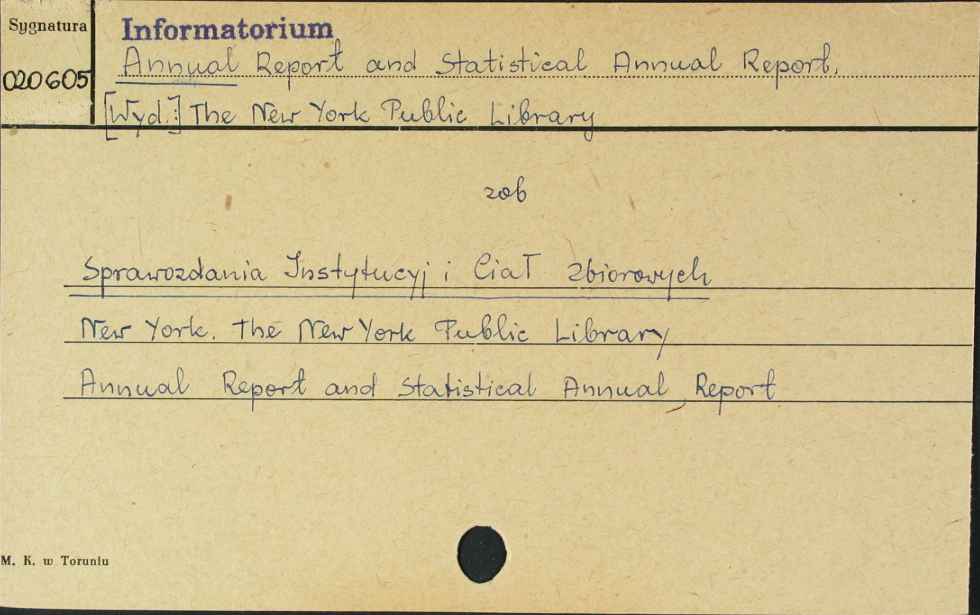 Sygnatura
Informatorium
020605
Annual Report and Statistical Annual Report.
[Wyd.:] The New York Public Library
zob
Sprawozdania Instytucyj i Ciał Zbiorowych
New York. The New York Public Library
Annual Report and Statistical Annual Report
M. K. w Toruniu